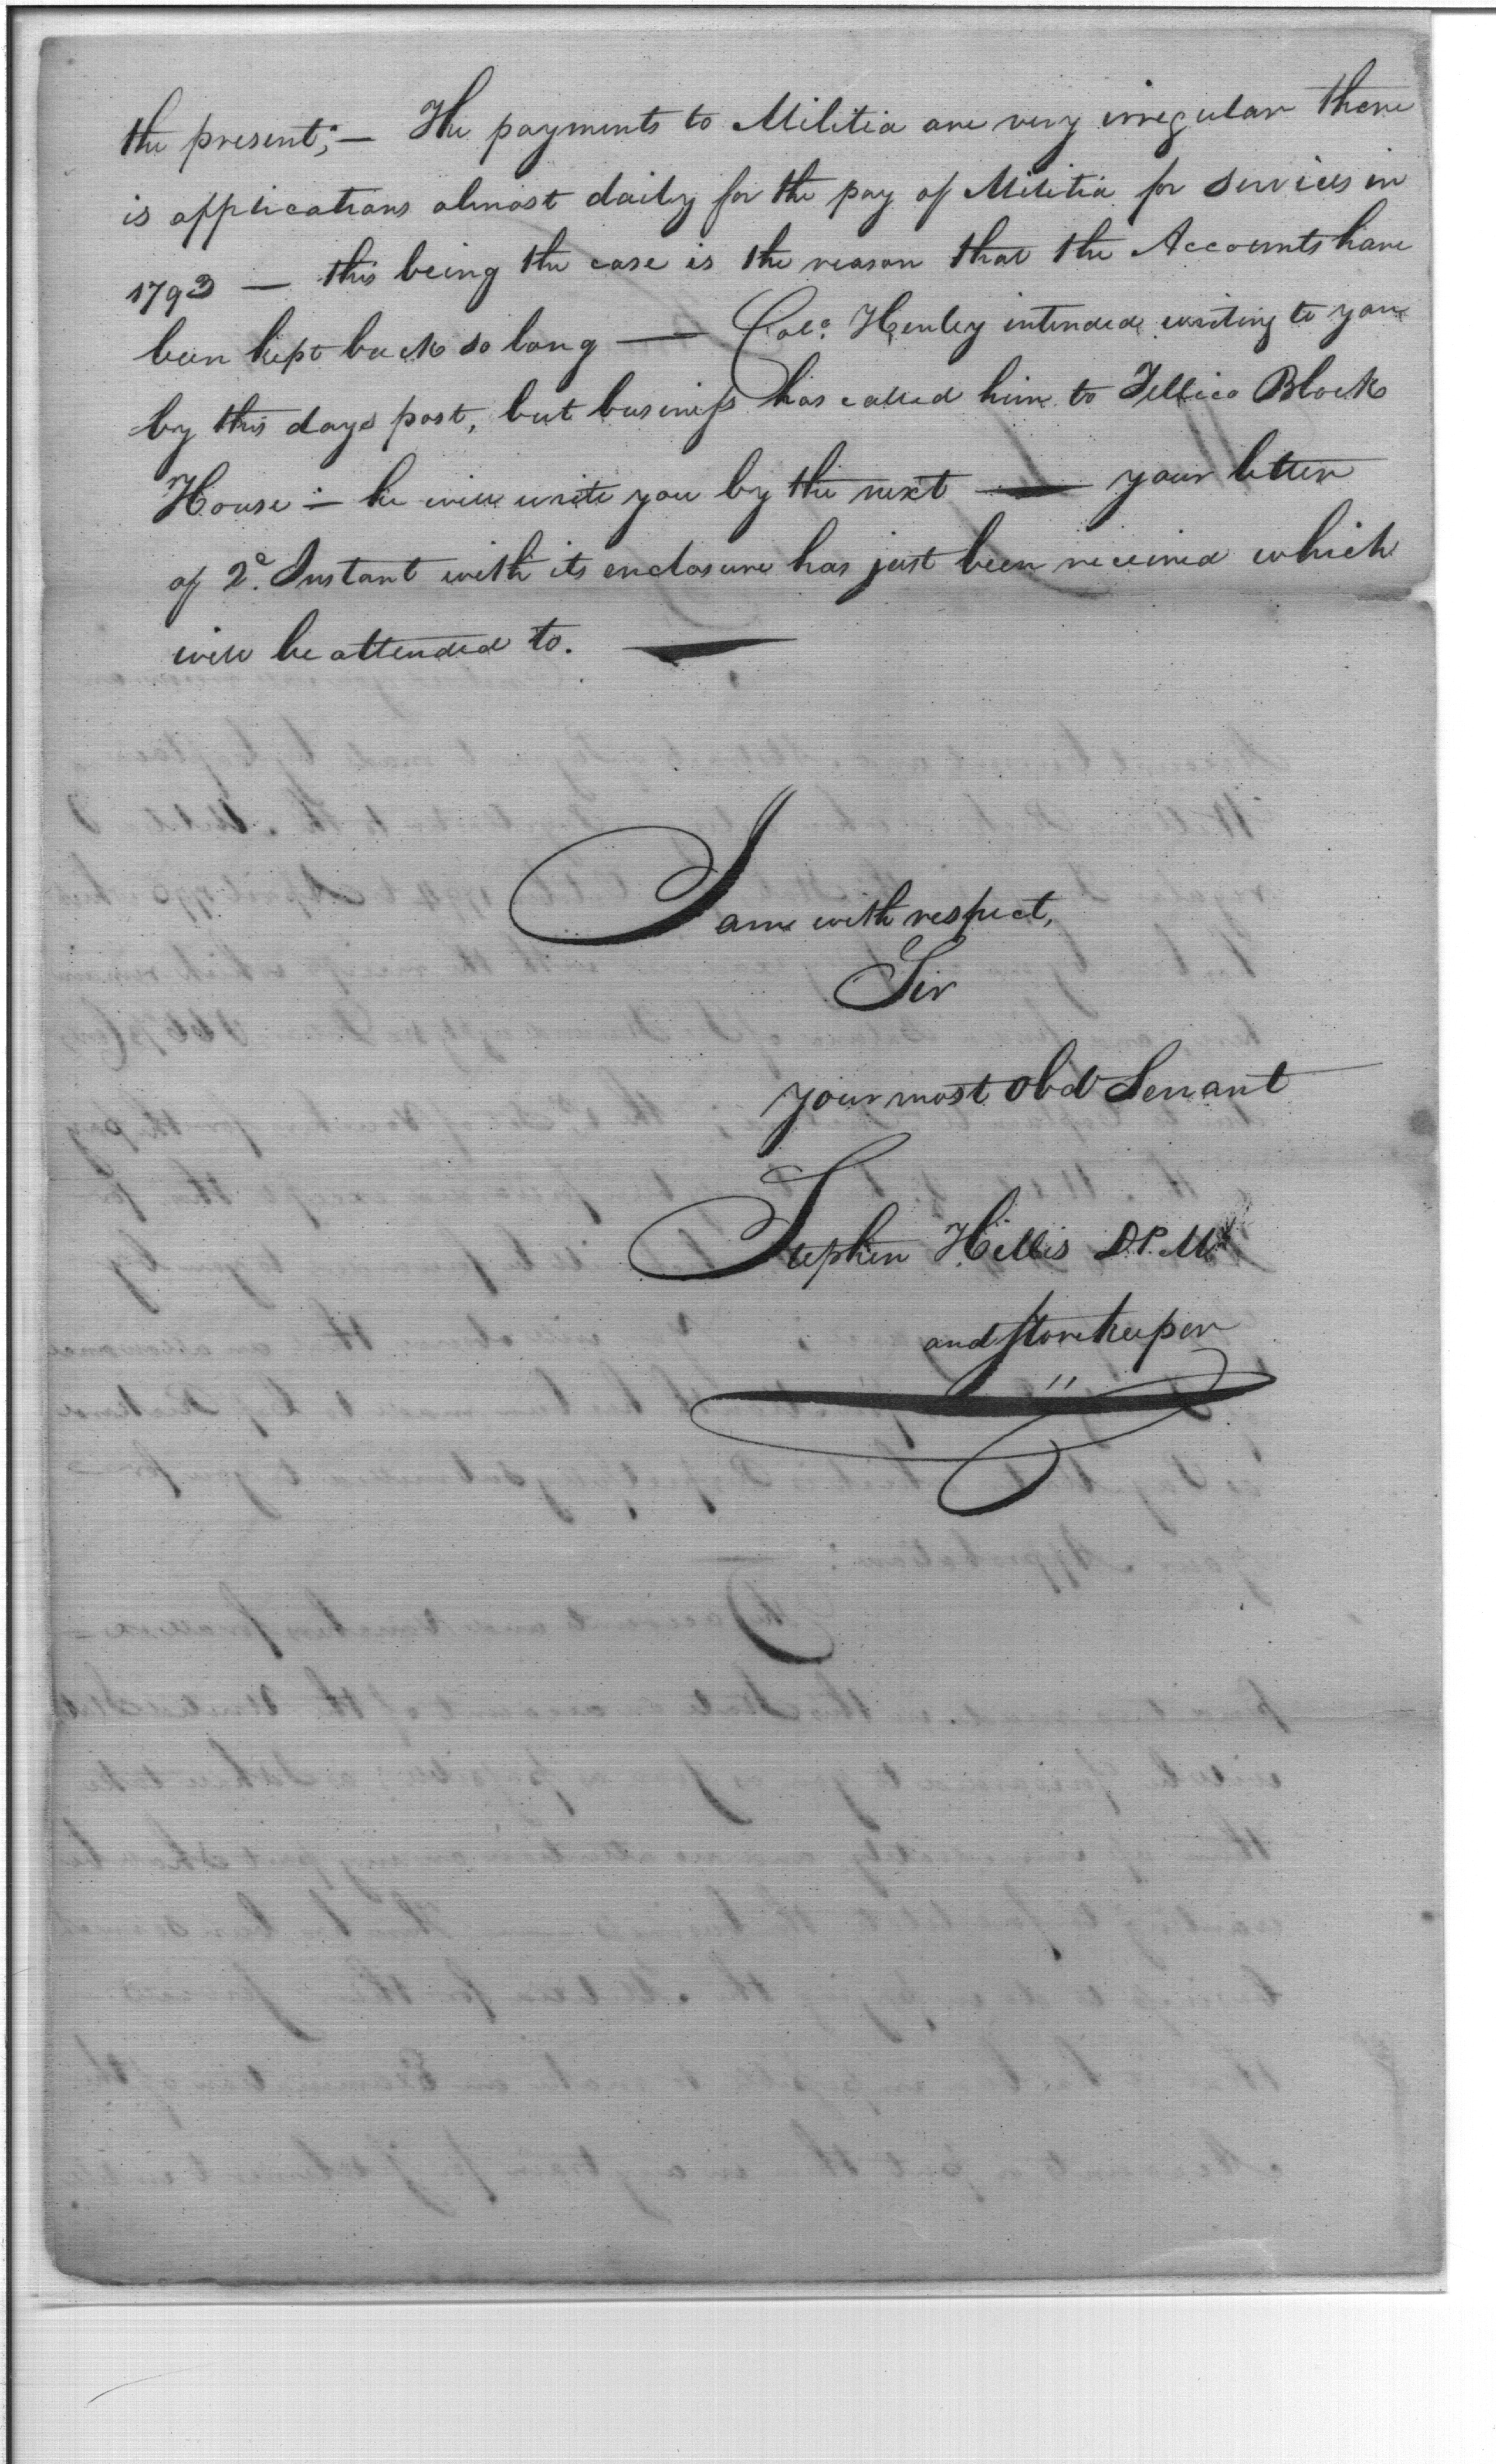 the present;— The payments to Militia are very irregular there
is applications almost daily for the pay of Militia for services in
1793 — this being the case is the reason that the Accounts have
been kept back so long — Colo. Henley intended writing to you
by this days post, but business has called him to Tellico Block
House :— he will write you by the next — your letter
of 2d. Instant with its enclosure has just been received which
will be attended to. —
I am with respect,
Sir
your most obd Servant
Stephen Hillis D.P.M
and Storekeeper